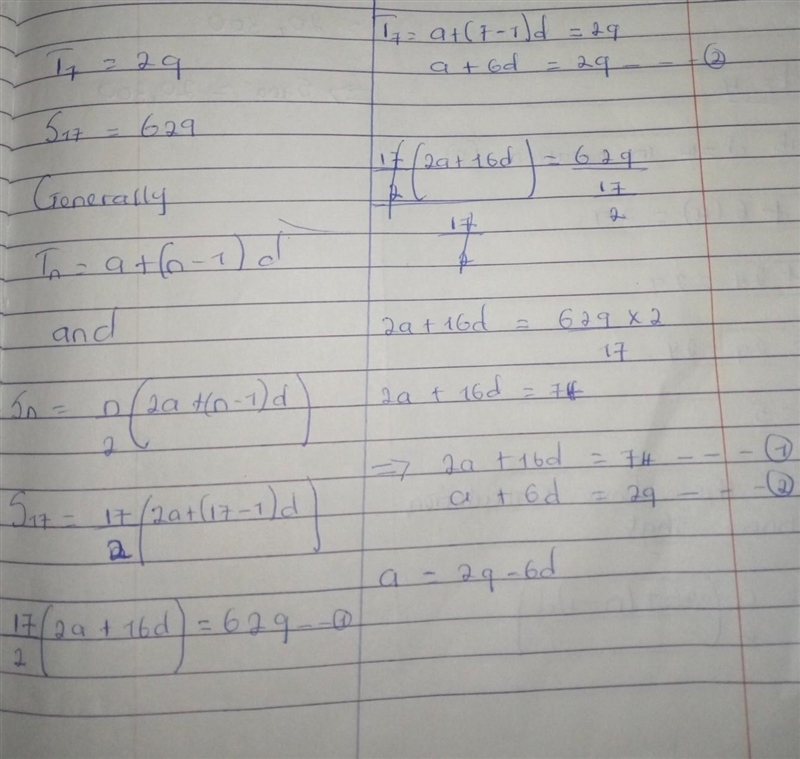 T₇ = 29
S₁₇ = 629
Generally
Tₙ = a+(n-1)d
and
Sₙ = n/2 (2a+(n-1)d)
S₁₇ = 17/2 (2a+(17-1)d)
17/2 (2a + 16d) = 629 -- ①
T₇ = a+(7-1)d = 29
a + 6d = 29 -- - ②
17/2 (2a+16d) = 629
17/2 17/2
2a+16d = 629 × 2
17
2a + 16d = 74
=> 2a + 16d = 74 -- - ①
a + 6d = 29 - - - ②
a = 29-6d